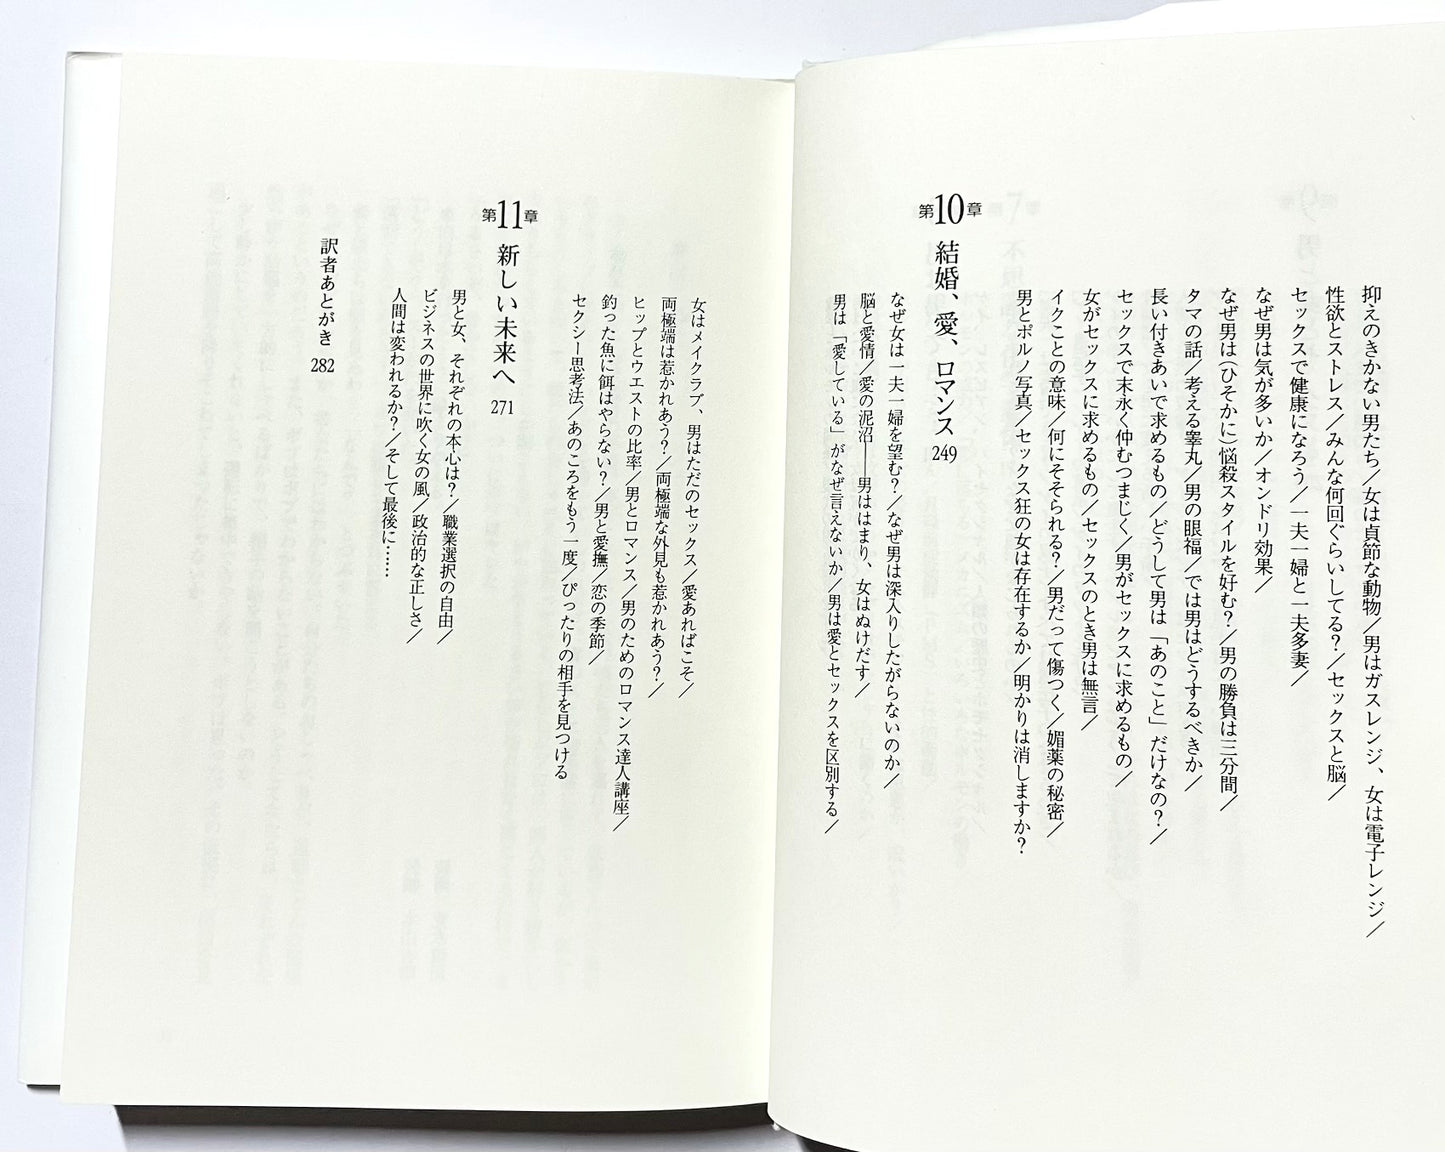 抑えのきかない男たち／女は貞節な動物／男はガスレンジ、女は電子レンジ／
性欲とストレス／みんな何回ぐらいしてる？／セックスと脳／
セックスで健康になろう／一夫一婦と一夫多妻／
なぜ男は気が多いか／オンドリ効果／
なぜ男は（ひそかに）悩殺スタイルを好む？／男の勝負は三分間／
タマの話／考える睾丸／男の眼福／では男はどうするべきか／
長い付きあいで求めるもの／どうして男は「あのこと」だけなの？／
セックスで末永く仲むつまじく／男がセックスに求めるもの／
女がセックスに求めるもの／セックスのとき男は無言／
イクことの意味／何にそそられる？／男だって傷つく／媚薬の秘密／
男とポルノ写真／セックス狂の女は存在するか／明かりは消しますか？
第10章 結婚、愛、ロマンス 249
なぜ女は一夫一婦を望む？／なぜ男は深入りしたがらないのか／
脳と愛情／愛の泥沼――男ははまり、女はぬけだす／
男は「愛している」がなぜ言えないか／男は愛とセックスを区別する／
女はメイクラブ、男はただのセックス／愛あればこそ／
両極端は惹かれあう？／両極端な外見も惹かれあう？／
ヒップとウエストの比率／男とロマンス／男のためのロマンス達人講座／
釣った魚に餌はやらない？／男と愛撫／恋の季節／
セクシー思考法／あのころをもう一度／ぴったりの相手を見つける
第11章 新しい未来へ 271
男と女、それぞれの本心は？／職業選択の自由／
ビジネスの世界に吹く女の風／政治的な正しさ／
人間は変われるか？／そして最後に……
訳者あとがき 282